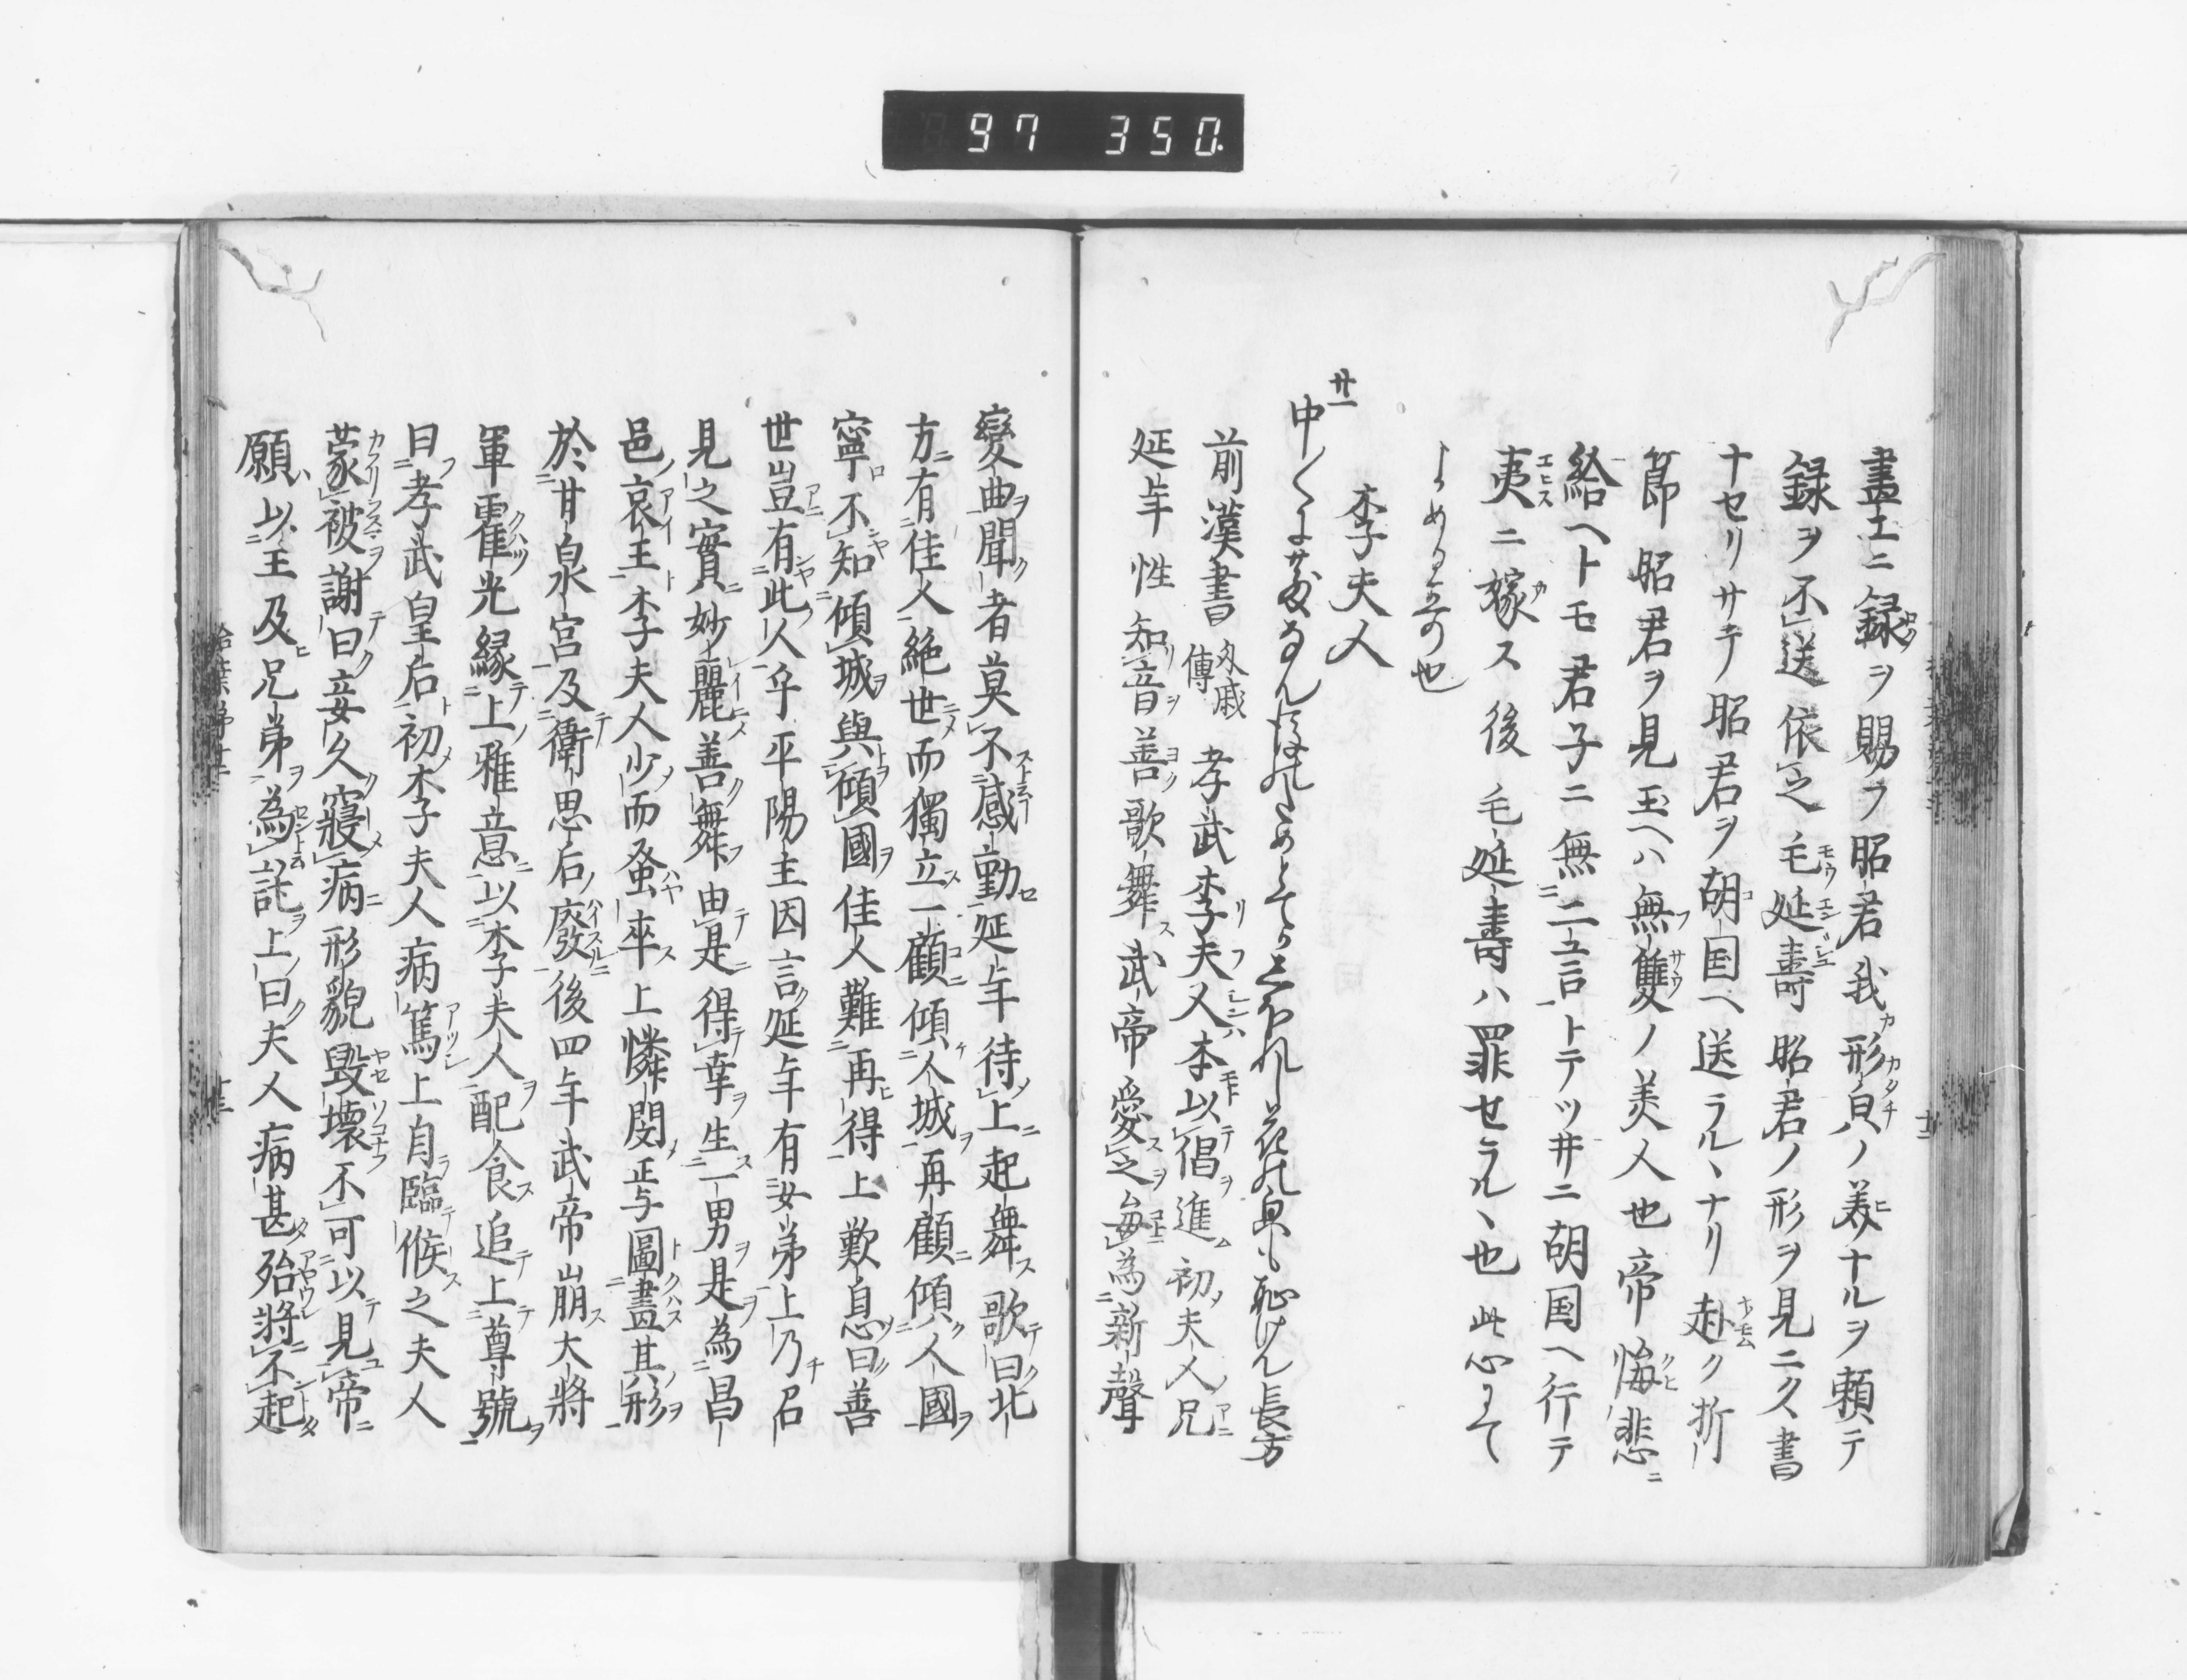 97 350.
畫工ニ録ヲ賜フ昭君我形皃ノ美ナルヲ頼テ
録ヲ不送依之毛延壽昭君ノ形ヲ見ニク書
ナセリサテ昭君ヲ胡国ヘ送ラルヽナリ赴ク折
節昭君ヲ見玉ヘハ無雙ノ美人也帝悔悲
給ヘトモ君子ニ無二言トテツ井ニ胡国ヘ行テ
夷ニ嫁ス後毛延壽ハ罪セラルヽ也此心にて
よめる哥也
李夫人
廿一
中〱に
花の色も恥けん長方
前漢書外戚傳孝武李夫人本以倡進初夫人兄
延年性知音善歌舞武帝愛之毎為新聲
變曲聞者莫不感動延年待上起舞歌曰北
方有佳人絶世而獨立一顧傾人城再顧傾人國
寧不知傾城與傾國佳人難再得上歎息曰善
世豈有此人乎平陽主因言延年有女弟上乃召
見之實妙麗善舞由是得幸生一男是為昌
邑哀王李夫人少而蚤卒上憐閔焉圖畫其形
於甘泉宮及衛思后廢後四年武帝崩大將
軍霍光縁上雅意以李夫人配食追上尊號
曰孝武皇后初李夫人病篤上自臨候之夫人
蒙被謝曰妾久寢病形貌毀壞不可以見帝
願以王及兄弟為託上曰夫人病甚殆將不起